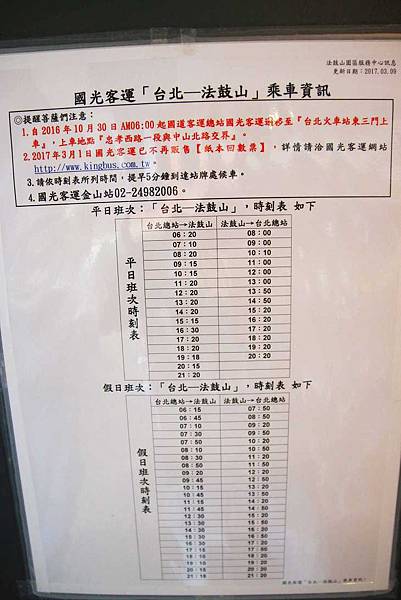 法鼓山園區服務中心訊息
更新日期：2017.03.09
國光客運「台北—法鼓山」乘車資訊
◎提醒菩薩們注意：
1.自2016年10月30日AM06:00起國道客運總站國光客運班移至『台北火車站東三門上
車』，上車地點『忠孝西路一段與中山北路交界』。
2.2017年3月1日國光客運已不再販售【紙本回數票】，詳情請洽國光客運網站
http://www.kingbus.com.tw。
3.請依時刻表所列時間，提早5分鐘到達站牌處候車。
4.國光客運金山站02-24982006。
平日班次：「台北—法鼓山」，時刻表 如下
平日班次時刻表
台北總站→法鼓山 法鼓山→台北總站
06：20 08：00
07：10 09：00
08：20 10：10
09：15 11：00
10：15 12：00
11：20 13：00
12：20
13：20
14：20
15：15
16：30
17：20
18：20
19：18
20：15 20：20
21：20
假日班次：「台北—法鼓山」，時刻表 如下
假日班次時刻表
台北總站→法鼓山 法鼓山→台北總站
06：15 07：50
06：45 08：50
07：10 09：20
07：30 09：50
07：50 10：20
08：10 10：50
08：30 11：20
08：50 11：50
09：20 12：20
09：45 12：50
10：15 13：20
10：45 13：50
11：15 14：20
11：45 14：50
12：30 15：20
國光客運「台北—法鼓山」乘車資訊